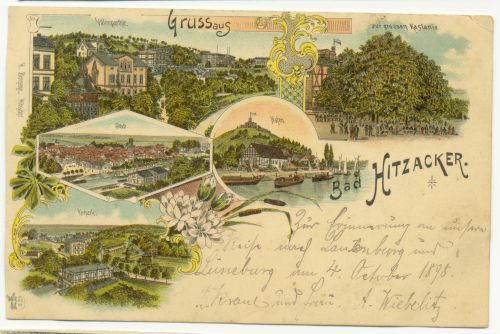 Villenpartie.
Gruss aus
zur grossen Kastanie
Stadt.
Hafen.
Bad HITZACKER.
Zur Erinnerung an unsere
Reise nach Lauenburg und
Lüneburg am 4. October 1898.
und Frau A. Wiebelitz